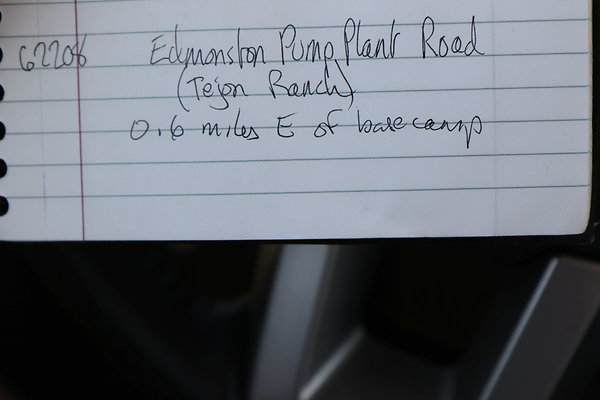 62206 Edmonston Pump Plant Road
(Tejon Ranch)
0.6 miles E of basecamp